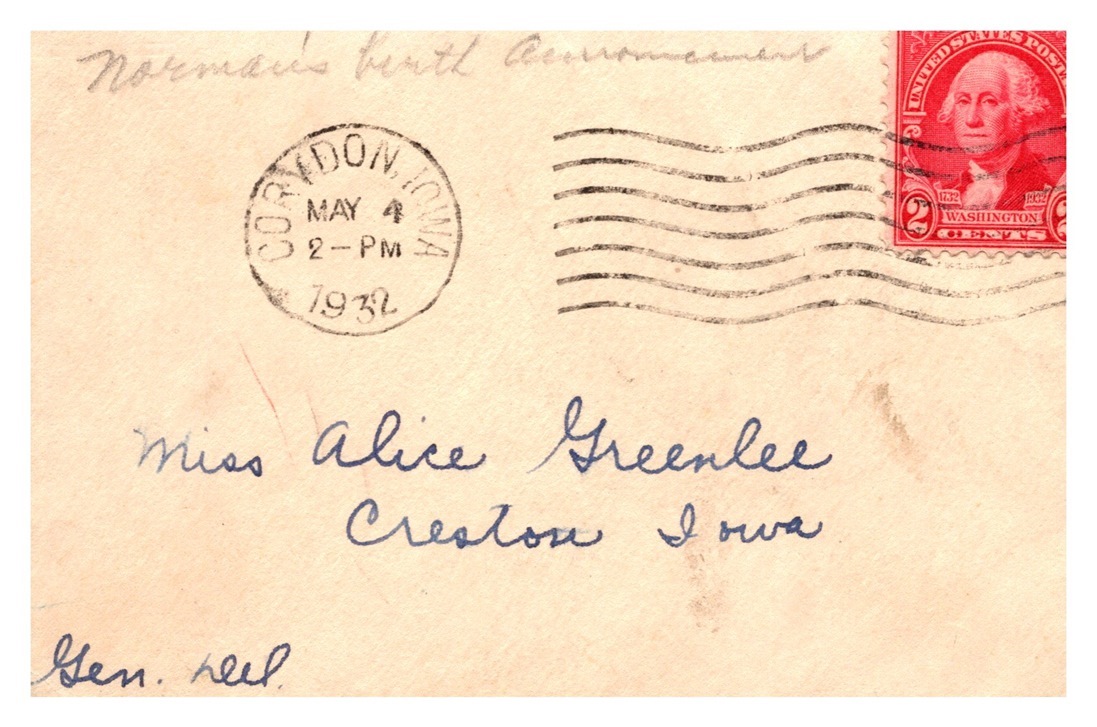 Norman's birth announcement
UNITED STATES POSTA
CORYDON, IOWA
MAY 4
2-PM
1932
1732 1932
WASHINGTON
2 2
CENTS
Miss Alice Greenlee
Creston Iowa
Gen. Del.